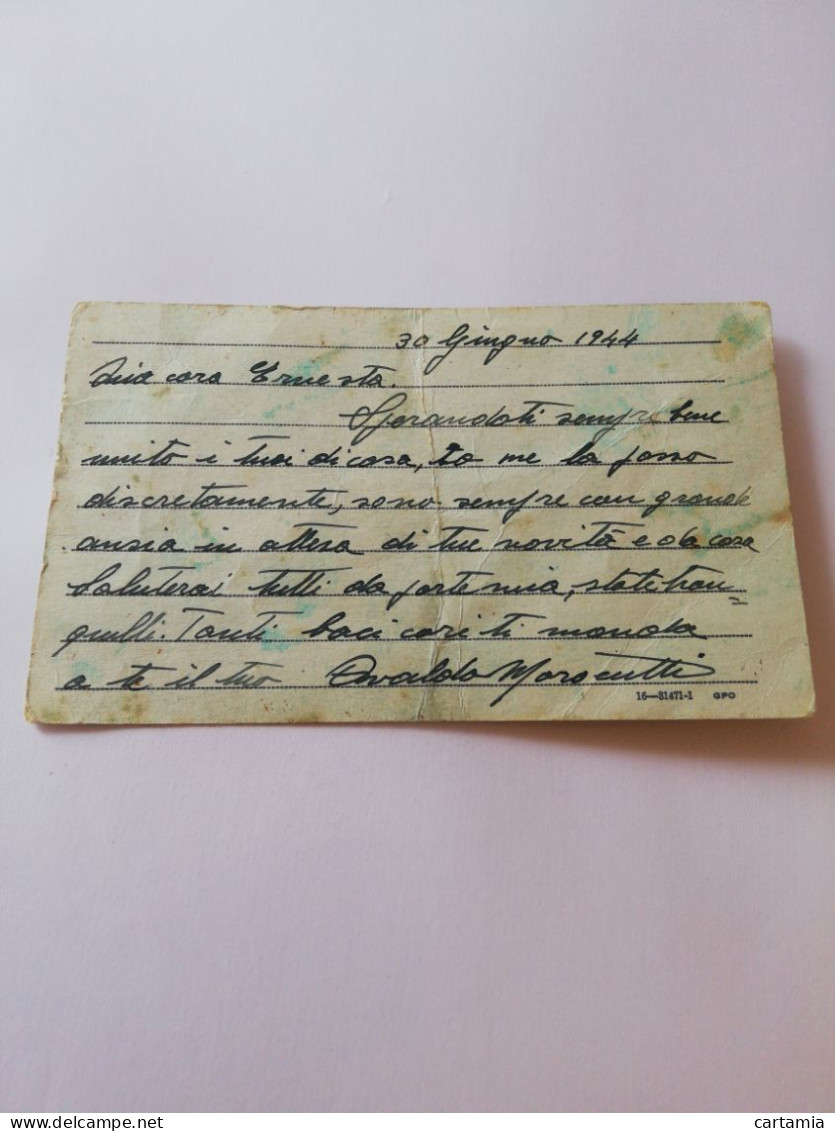 30 Giugno 1944
Mia cara Ernesta.
Sperandoti sempre bene
unito i tuoi di casa, Io me la passo
discretamente, sono sempre con grande
ansia in attesa di tue novità e da casa
Saluterai tutti da parte mia, state tran=
quilli. Tanti baci cari ti manda
a te il tuo Osvaldo Morocutti
16—31471-1 GPO
cartamia